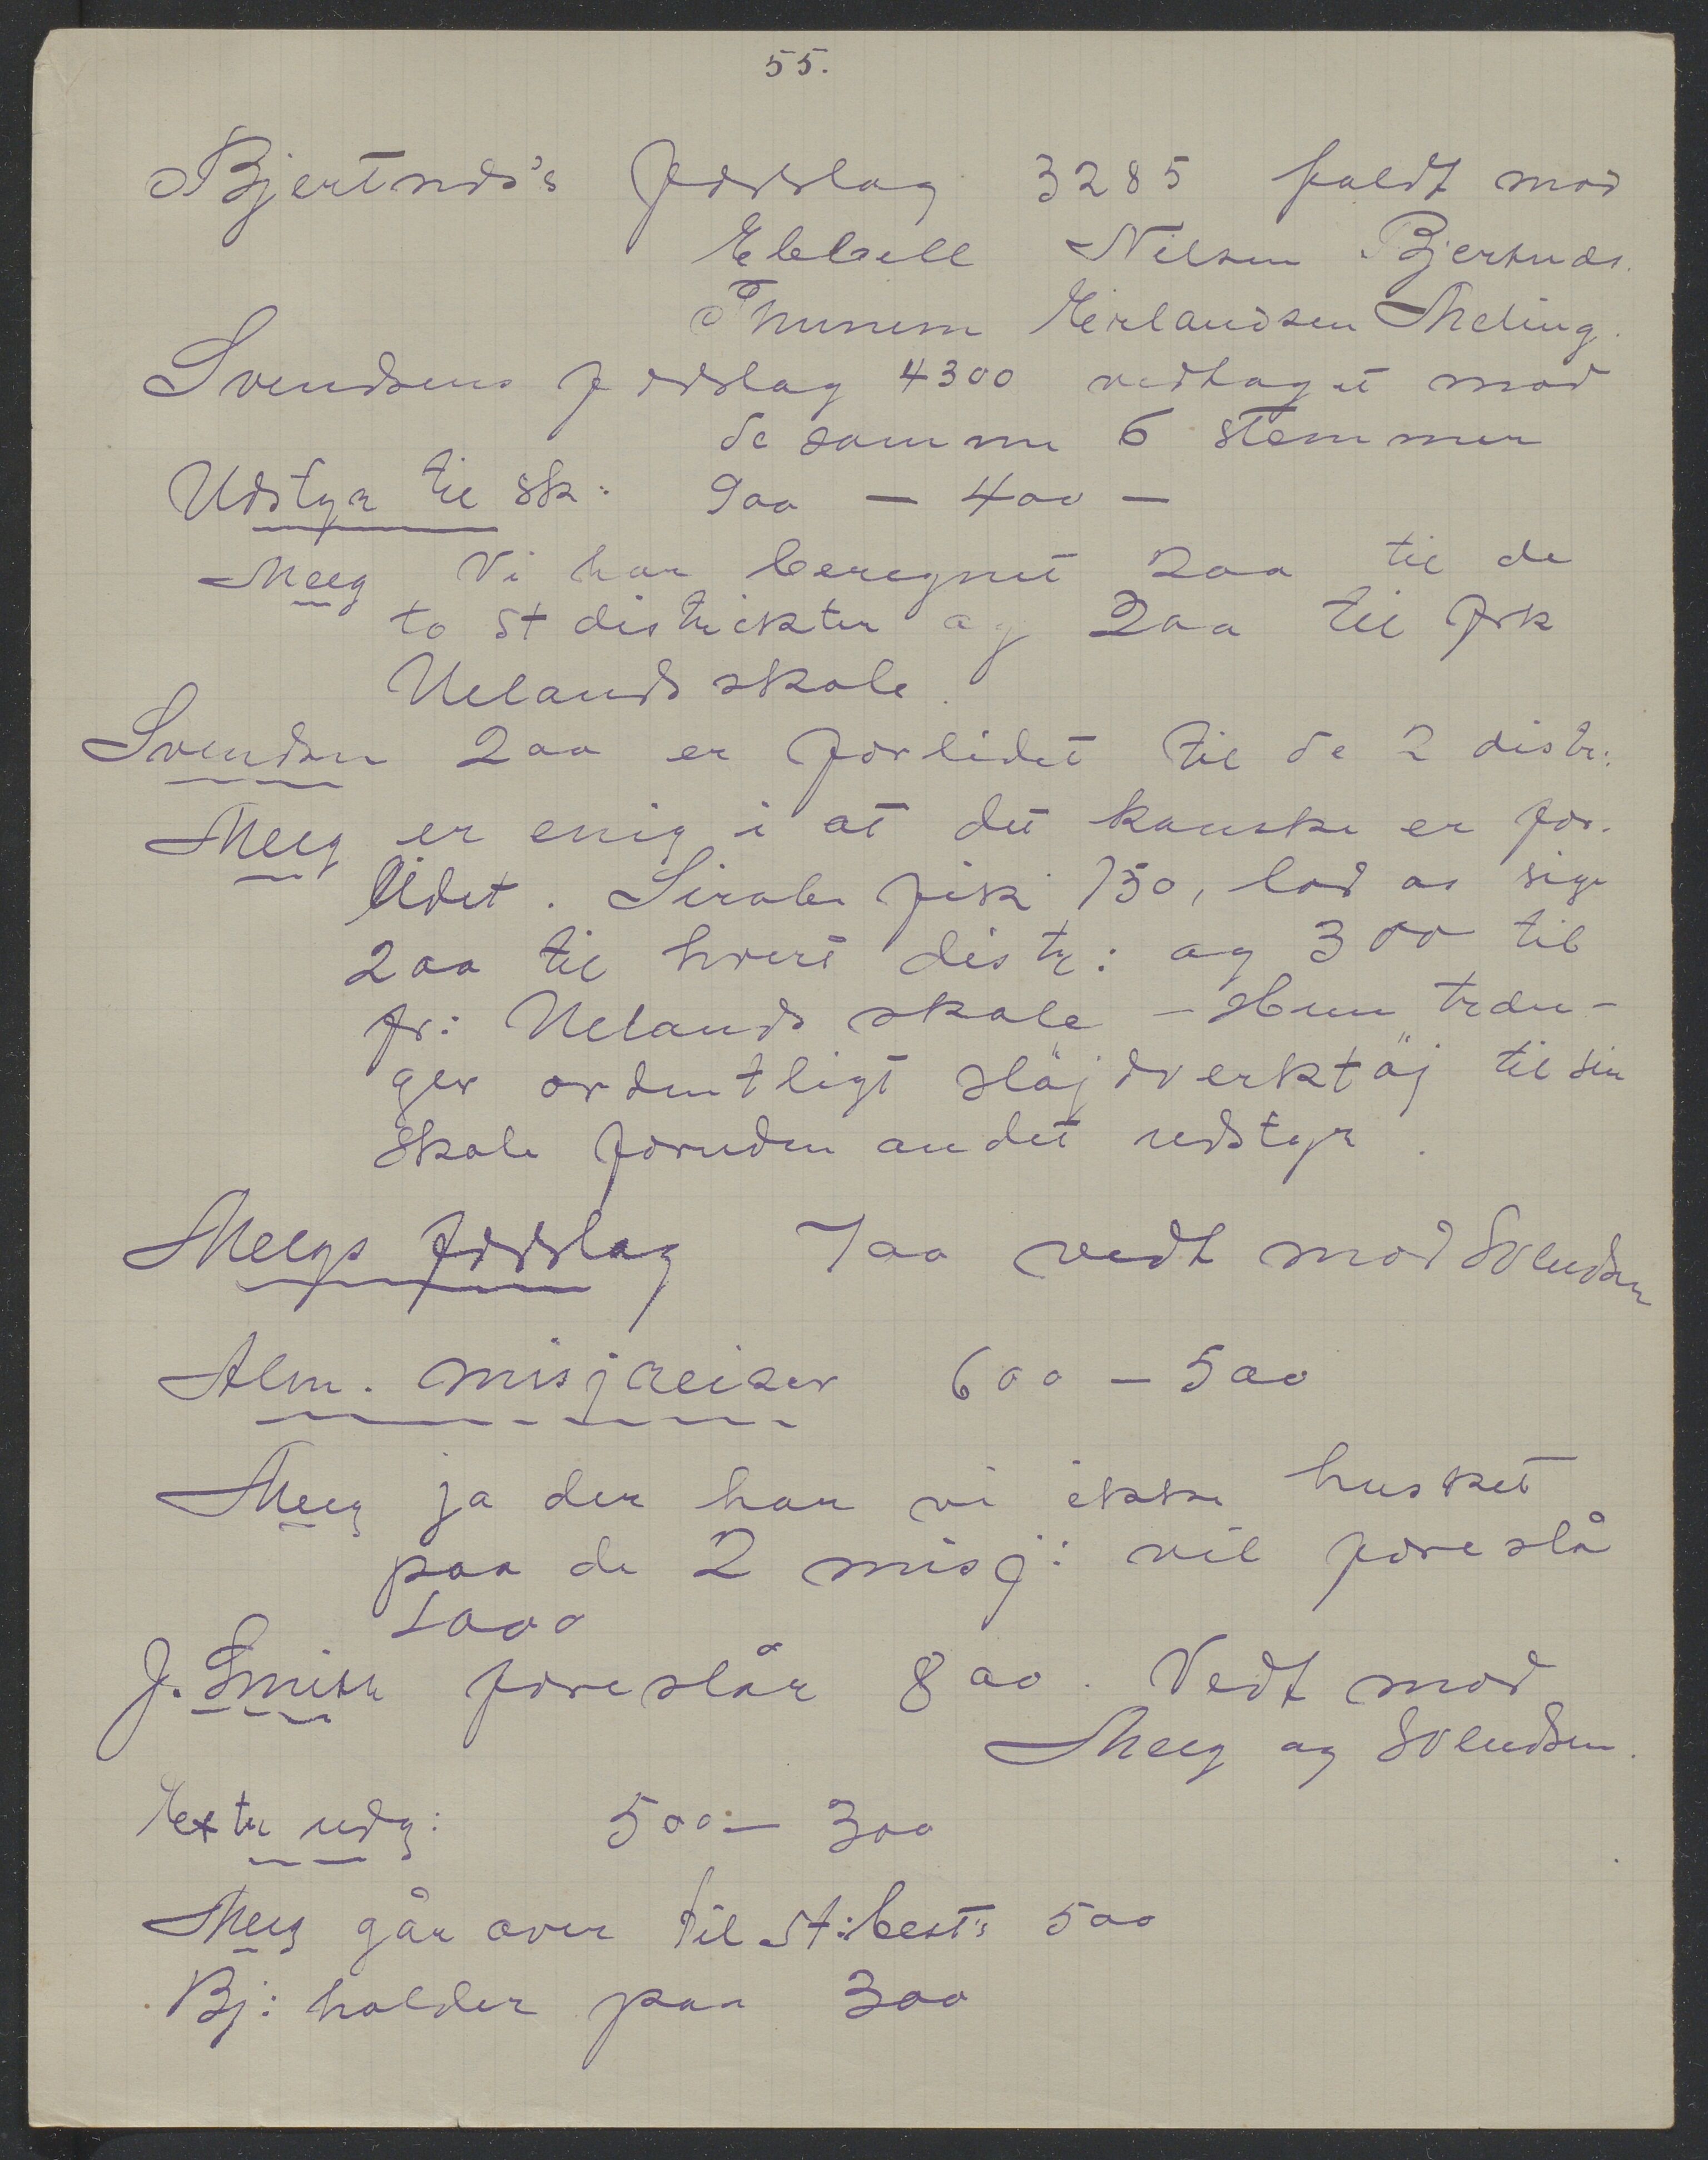 55.
Bjertnes's Forslag 3285 faldt mod
Ebbell Nilsen Bjertnæs.
Thunem Erlandsen Meling.
Svendsens forslag 4300 vedtaget mod
de samme 6 stemmer
Udstyr til sk: 900 — 400 —
Meeg Vi har beregnet 200 til de
to st distrikter og 200 til frk
Uelands skole.
Svendsen 200 er forlidet til de 2 distr:
Meeg er enig i at det kanske er for-
lidet. Sirabe fik 750, lad os sige
200 til hvert distr: og 300 til
fr: Uelands skole – Hun træn-
ger ordentligt sløjdverktøj til sin
skole foruden andet udstyr.
Meegs forslag 700 vedt mod Svendsen
Alm. misjreiser 600 – 500
Meeg ja der har vi ikke husket
paa de 2 misj: vil foreslå
1000
J. Smith foreslår 800. Vedt mod
Meeg og Svendsen.
Extr udg: 500 – 300
Meeg går over til St:best's 500
Bj: holder paa 300